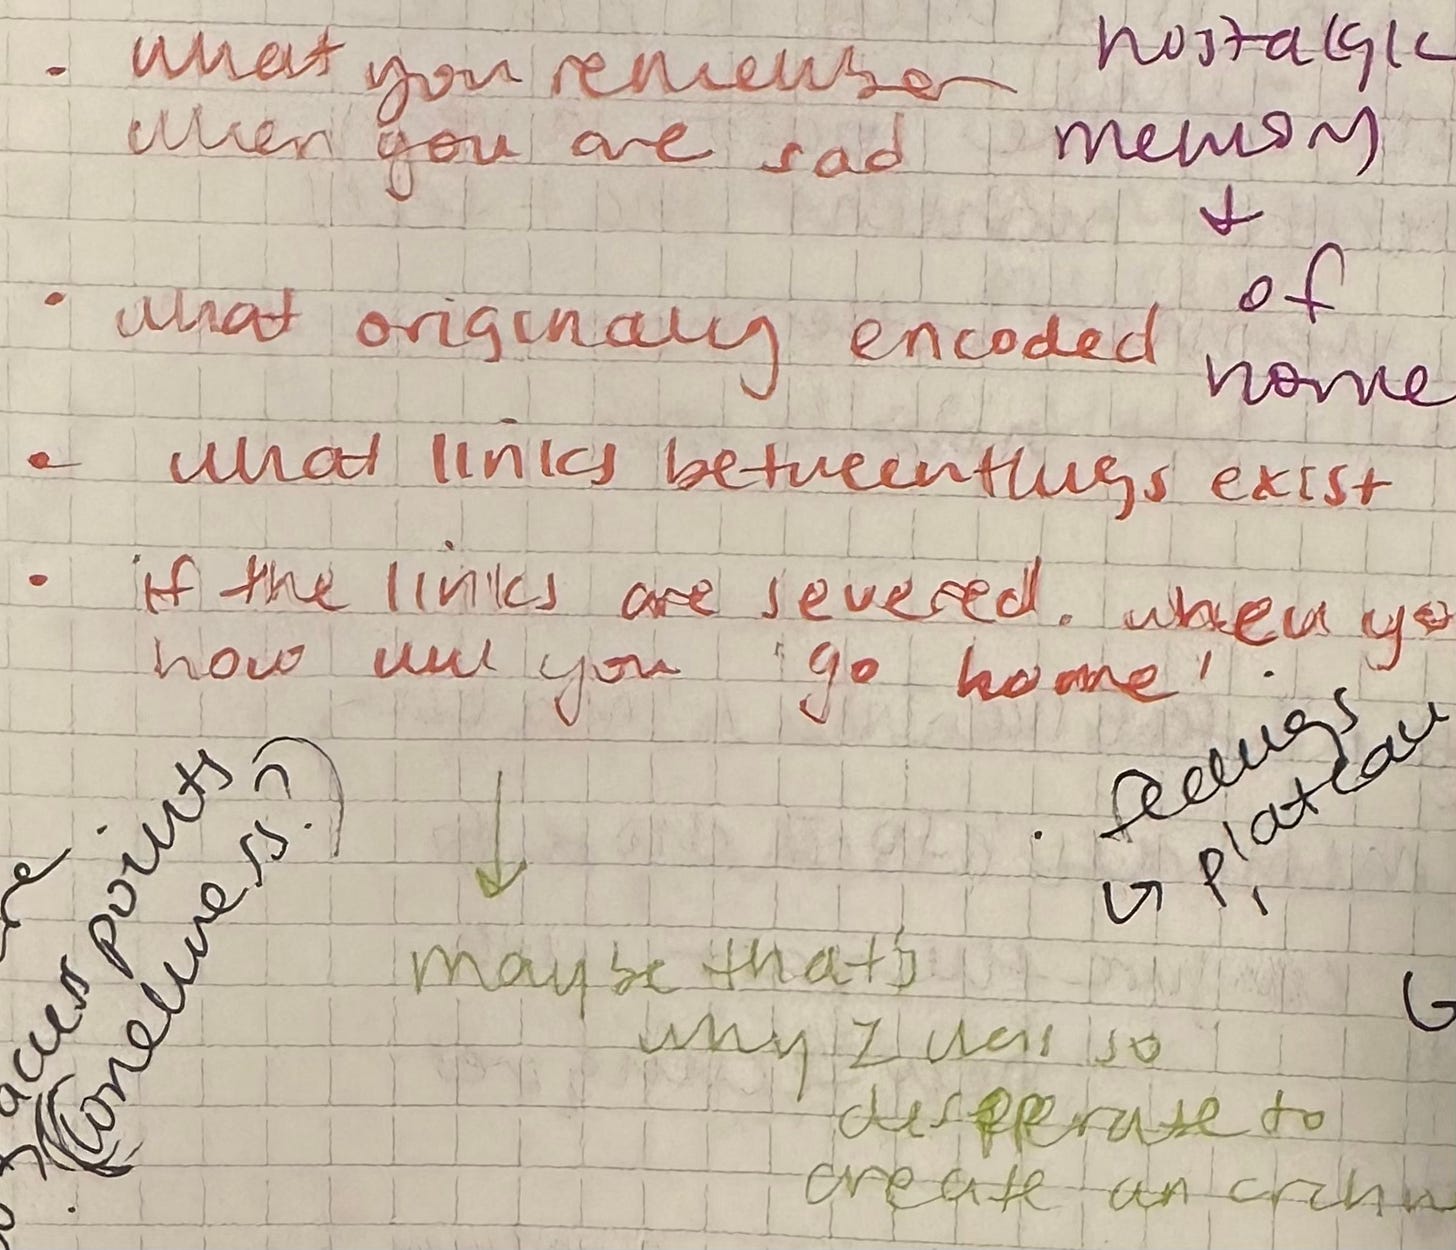 · what you remember
when you are sad
· what originally encoded
- what links between things exist
· if the links are severed. when yo
how will you 'go home'.
nostalgic
memory
↓
of
home
access points
(loneliness?)
· feelings
↳ plateau
↓
maybe that's
why I was so
desperate to
create an archiv